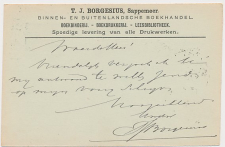 T. J. BORGESIUS, Sappemeer.
BINNEN- EN BUITENLANDSCHE BOEKHANDEL.
BOEKBINDERIJ. - BOEKDRUKKERIJ. - LEESBIBLIOTHEEK.
Spoedige levering van alle Drukwerken.
Vriendelijk verzoek ik
mij antwoord te willen zenden
op mijn
Hoogachtend
Borgesius